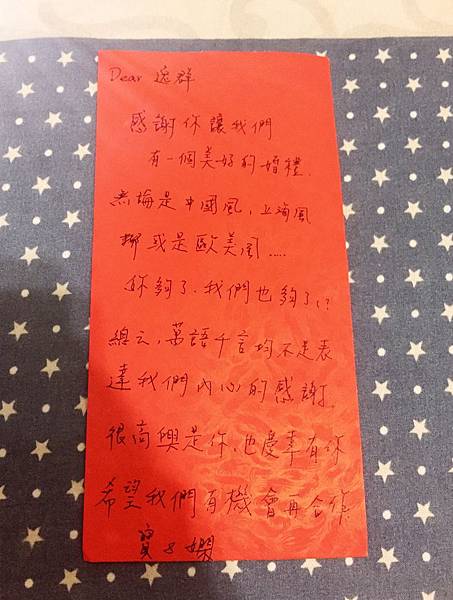 Dear 逸群
感謝你讓我們
有一個美好的婚禮.
無論是中國風,上海風
抑或是歐美風.....
妳夠了.我們也夠了!?
總云,萬語千言均不足表
達我們內心的感謝.
很高興是你,也慶幸有你
希望我們有機會再合作
寶 &